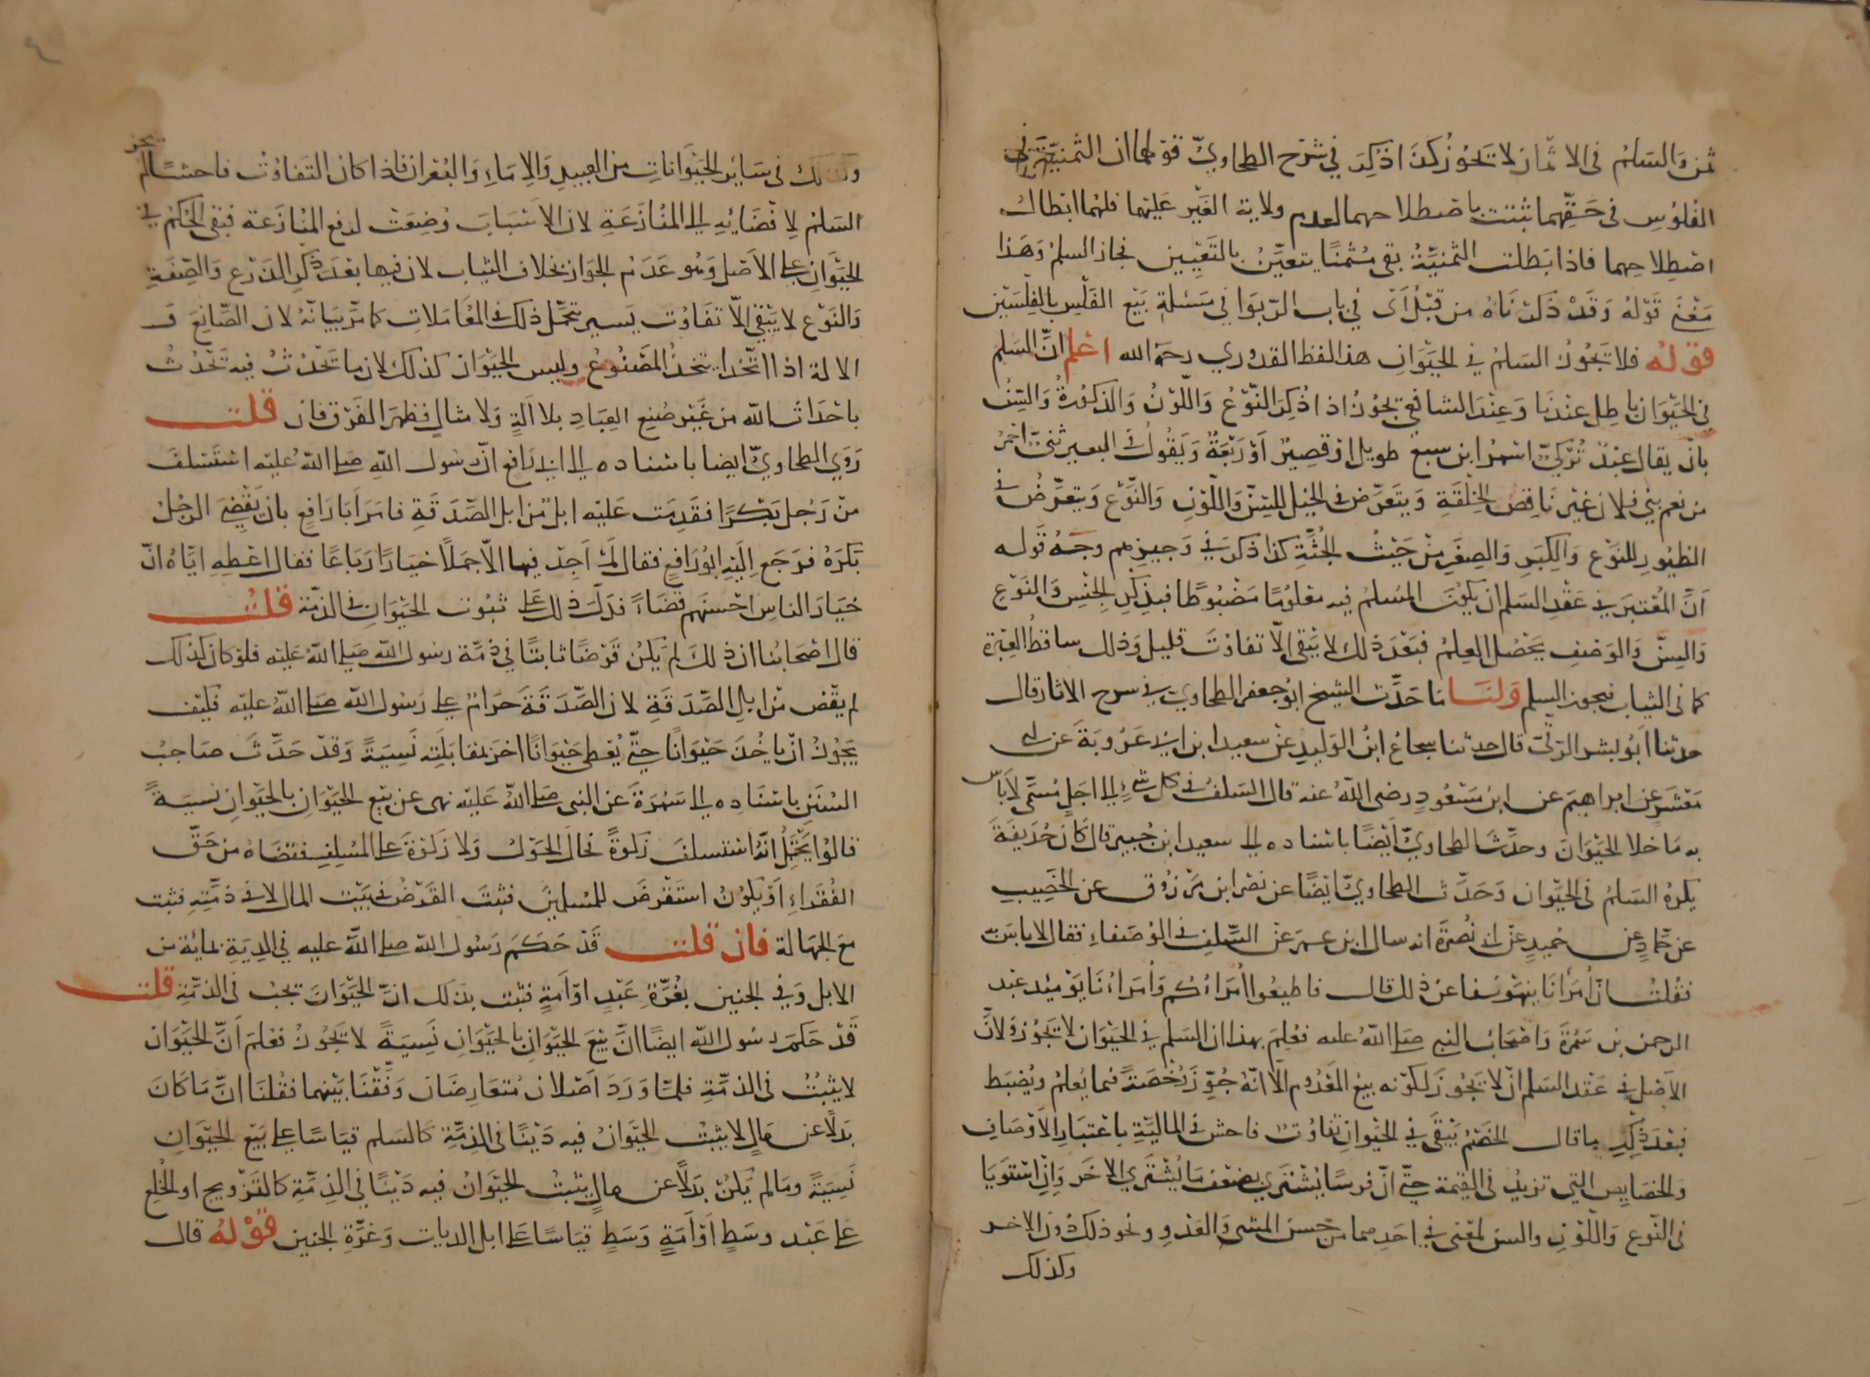 ثمن والسلم في الاثمان لا تجوز كذا ذكر في شرح الطحاوي قولهما ان الثمنية في
الفلوس في حقهما ثبتت باصطلاحهما لعدم ولاية الغير عليهما فلهما ابطال
اصطلاحهما فاذا بطلت الثمنية بقي مثمنا يتعين بالتعيين فجاز السلم وهذا
معنى قوله وقد ذكرناه من قبل اى في باب الربوا في مسئلة بيع الفلس بالفلسين
قوله فلا تجوز السلم في الحيوان هذا لفظ القدوري رحمه الله اعلم ان السلم
في الحيوان باطل عندنا وعند الشافعي يجوز اذا ذكر النوع واللون والذكورة والسن
بان يقال عبد تركي اسمر ابن سبع طويل او قصير او ربعة ويقول في البعير ثني احمر
من نعم بني فلان غير ناقص الخلقة ويتعرض في الخيل للسن واللون والنوع ويتعرض في
الطيور للنوع والكبر والصغر من حيث الجثة كذا ذكر في وجيزهم وجه قوله
ان المعتبر في عقد السلم ان يكون المسلم فيه معلوما مضبوطا فبذكر الجنس والنوع
والسن والوصف يحصل العلم فبعد ذلك لا يبقى الا تفاوت قليل وذلك ساقط العبرة
كما في الثياب فيجوز السلم ولنا ما حدث الشيخ ابو جعفر الطحاوي في شرح الاثار قال
حدثنا ابو بشر الرقي قال حدثنا شجاع ابن الوليد عن سعيد ابن ابي عروبة عن ابي
معشر عن ابراهيم عن ابن مسعود رضى الله عنه قال السلف في كل شيء الى اجل مسمى لا باس
به ما خلا الحيوان وحدث الطحاوي ايضا باسناده الى سعيد ابن جبير قال كان حذيفة
يكره السلم في الحيوان وحدث الطحاوي ايضا عن نصر ابن مرزوق عن الخصيب
عن حماد عن حميد عن ابي نضرة انه سال ابن عمر عن السلف في الوصفاء فقال لا باس به
فقلت ان امرانا ينهوننا عن ذلك قال فاطيعوا امراءكم وامراءنا يومئذ عبد
الرحمن بن سمرة واصحاب النبي صلى الله عليه فعلم بهذا ان السلم في الحيوان لا تجوز ولان
الاصل في عقد السلم ان لا تجوز لكونه بيع المعدوم الا انه جوز رخصة فيما يعلم ويضبط
فبعد ذكر ما قال الخصم يبقى في الحيوان تفاوت فاحش في المالية باعتبار الاوصاف
والخصايص التي تزيد في القيمة حتى ان فرسا يشترى بضعف ما يشترى الاخر وان استويا
في النوع واللون والسن لمعنى في احدهما من حسن المشى والعدو ونحو ذلك دون الاخر
وكذلك
وكذلك في سائر الحيوانات من العبيد والاماء والبعران فاذا كان التفاوت فاحشا لم يجز
السلم لافضائه الى المنازعة لان الاسباب وضعت لدفع المنازعة فبقى الحكم في
الحيوان على الاصل وهو عدم الجواز بخلاف الثياب لان فيها بعد ذكر الذرع والصفة
والنوع لا يبقى الا تفاوت يسير يتحمل ذلك في المعاملات كما مر بيانه لان الصانع و
الالة اذا اتحدا يتحد المصنوع وليس الحيوان كذلك لان ما تحدث فيه تحدث
باحداث الله من غير صنيع العباد بلا الة ولا مثال فظهر الفرق فان قلت
روى الطحاوي ايضا باسناده الى ابي رافع ان رسول الله صلى الله عليه استسلف
من رجل بكرا فقدمت عليه ابل من ابل الصدقة فامر ابا رافع بان يقضي الرجل
بكره فرجع اليه ابو رافع فقال لم اجد فيها الا جملا خيارا رباعا فقال اعطه اياه ان
خيار الناس احسنهم قضاء فدل ذلك على ثبوت الحيوان في الذمة قلت
قال اصحابنا ان ذلك لم يكن قرضا ثابتا في ذمة رسول الله صلى الله عليه فلو كان كذلك
لم يقض من ابل الصدقة لان الصدقة حرام على رسول الله صلى الله عليه فكيف
يجوز ان ياخذ حيوانا حتى يعطي حيوانا اخر بمقابلته نسية وقد حدث صاحب
السنن باسناده الى سمرة عن النبى صلى الله عليه نهى عن بيع الحيوان بالحيوان نسية
قالوا يحتمل انه استسلف زكوة فحال الحول ولا زكوة على المسلف فقضاه من حق
الفقراء او يكون استقرض للمسلمين فثبت القرض في بيت المال لا في ذمته فثبت
مع الجهالة فان قلت قد حكم رسول الله صلى الله عليه في الدية بمائة من
الابل وفي الجنين بغرة عبد او امة فثبت بذلك ان الحيوان تجب في الذمة قلت
قد حكم رسول الله ايضا ان بيع الحيوان بالحيوان نسية لا تجوز فعلم ان الحيوان
لا يثبت في الذمة فلما ورد اصلان متعارضان وفقنا بينهما فقلنا ان ما كان
بدلا عن مال لا يثبت الحيوان فيه دينا في الذمة كالسلم قياسا على بيع الحيوان
نسية وما لم يكن بدلا عن مال يثبت الحيوان فيه دينا في الذمة كالتزويج او الخلع
على عبد وسط او امة وسط قياسا على ابل الديات وغرة الجنين قوله قال